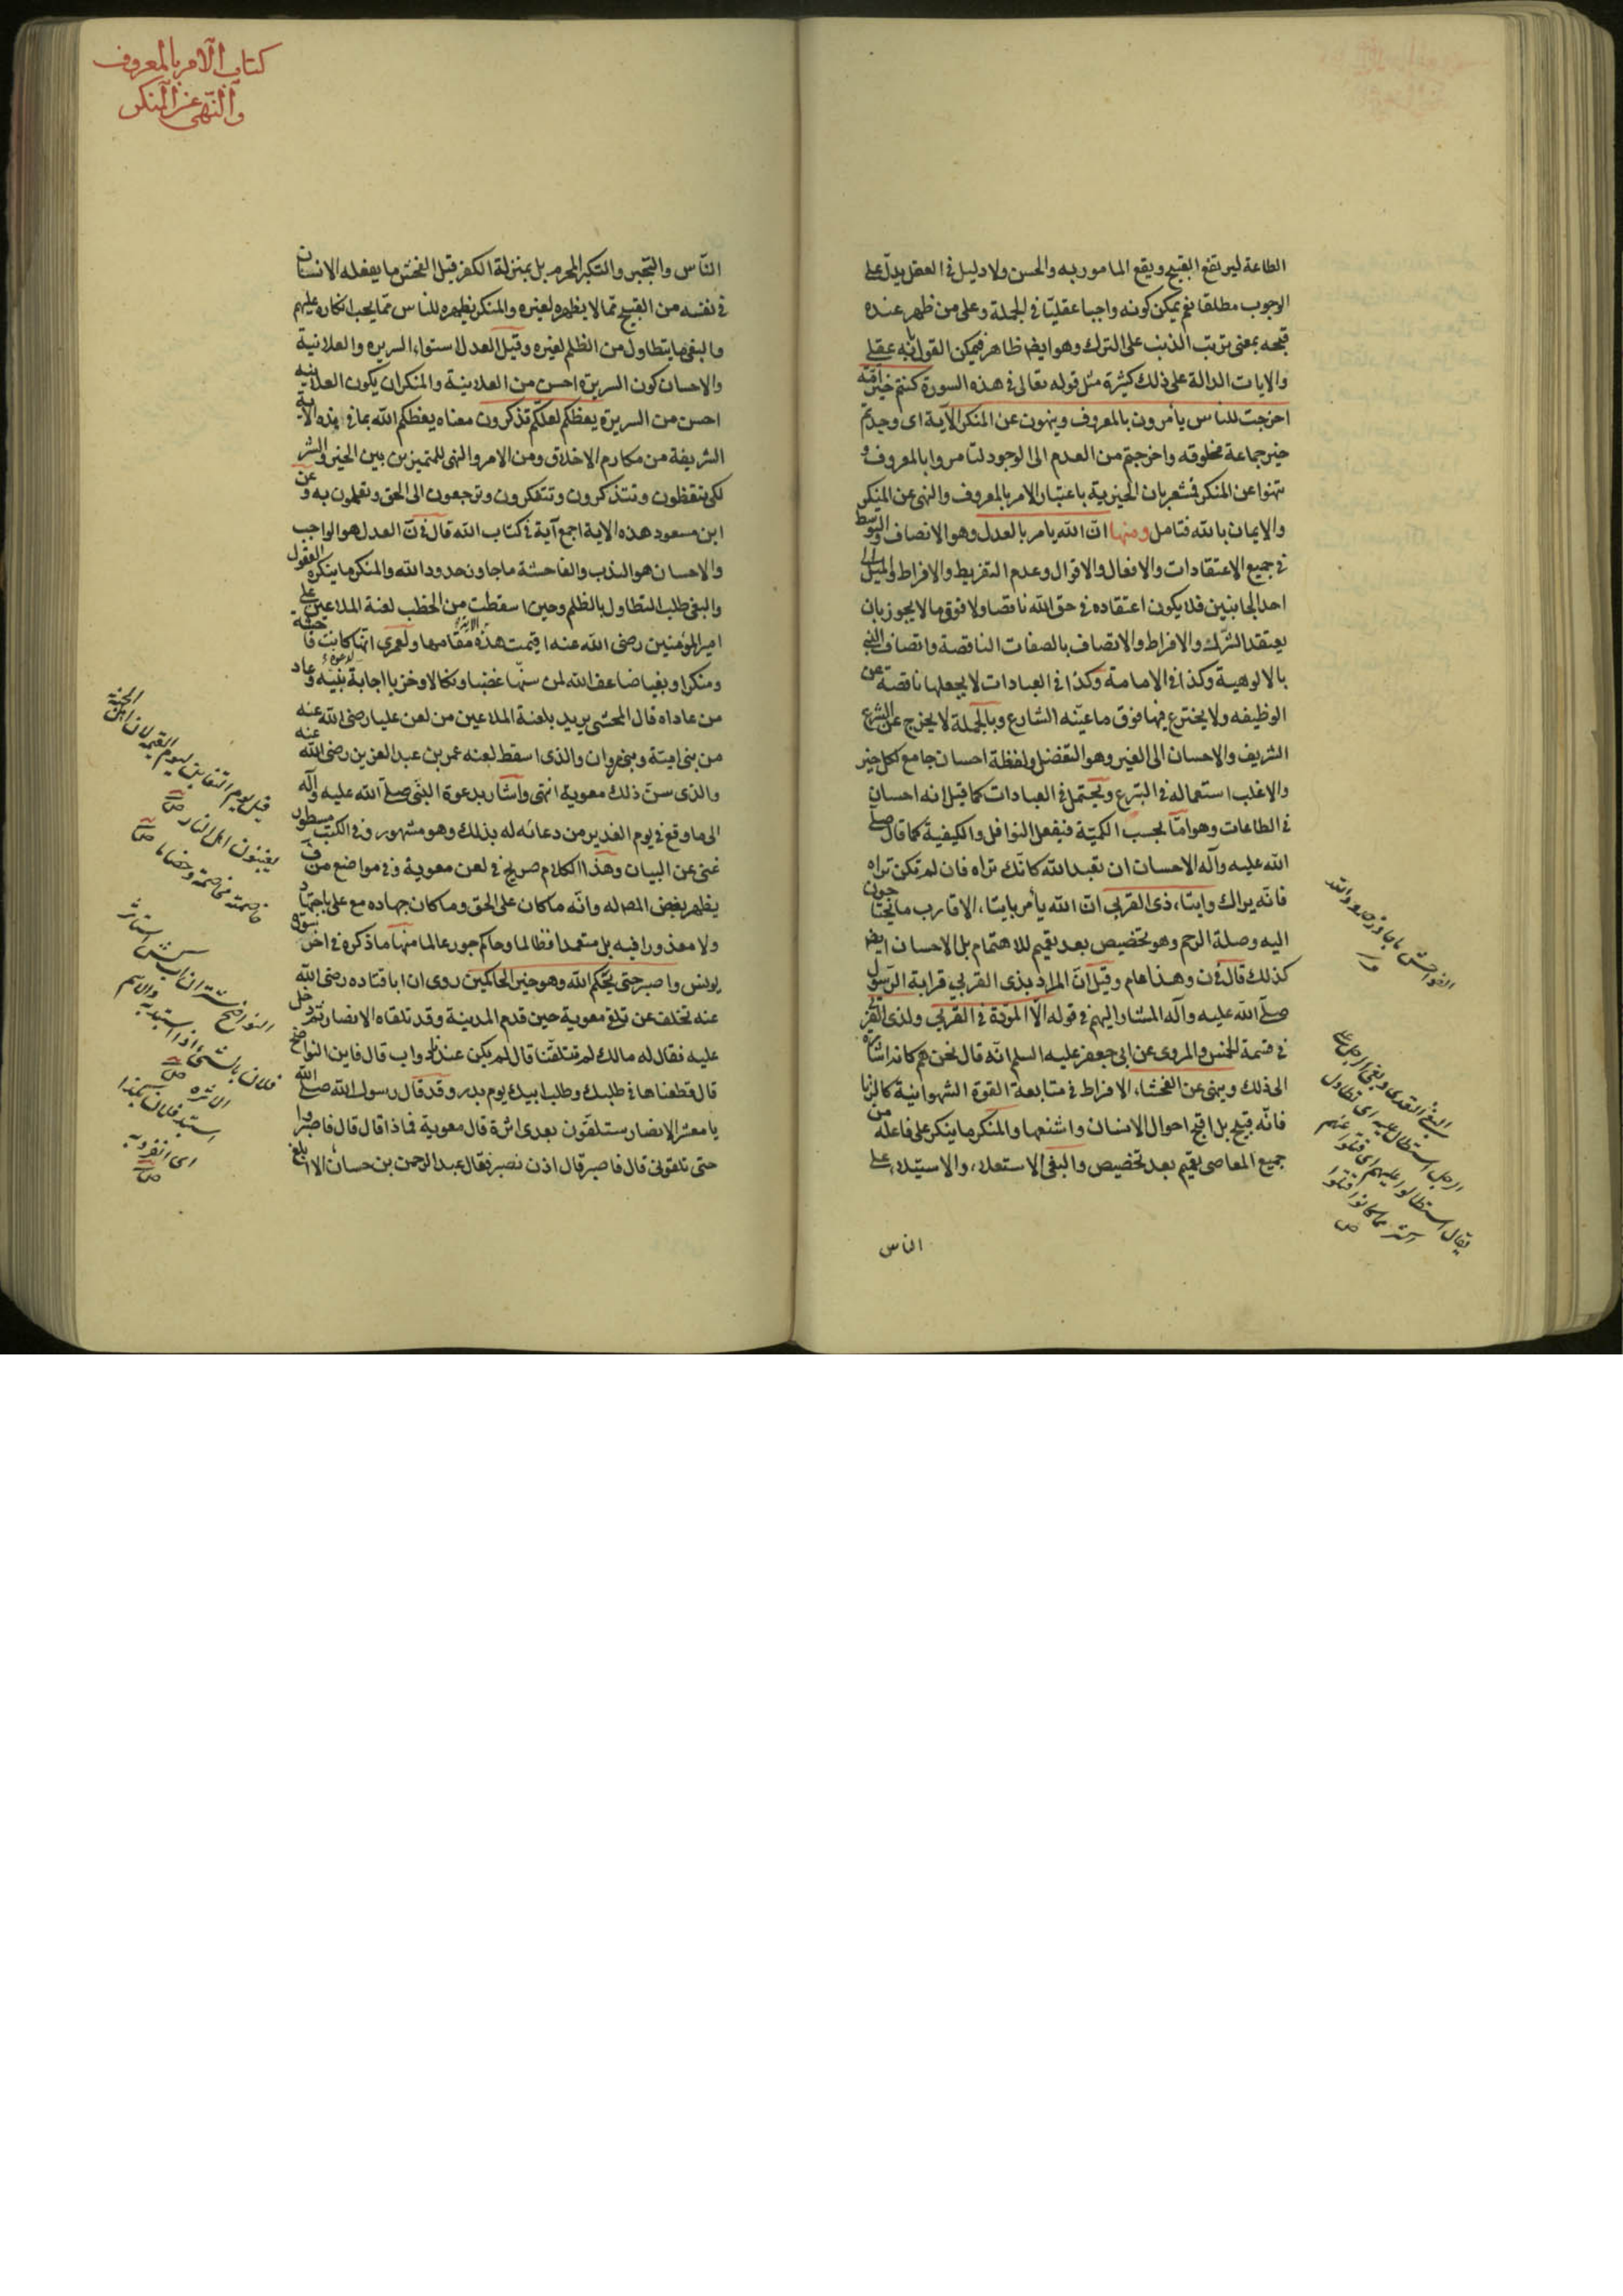 الطاعة ليرتفع القبيح ويقع المامور به والحسن ولا دليل في العقل يدل على
الوجوب مطلقا نعم يمكن كونه واجبا عقليا في الجملة وعلى من ظهر عنده
قبحه بمعنى ترتب الذنب على الترك وهو ايضا ظاهر فيمكن القول بانه عقلي
والايات الدالة على ذلك كثيرة مثل قوله تعالى في هذه السورة كنتم خير امة
اخرجت للناس يأمرون بالمعروف وينهون عن المنكر الآية اى وجدتم
خير جماعة مخلوقه واخرجتم من العدم الى الوجود لتامروا بالمعروف و
تنهوا عن المنكر فتشعر بان الخيرية باعتبار الامر بالمعروف والنهى عن المنكر
والايمان بالله فتامل ومنها ان الله يامر بالعدل وهو الانصاف والتوسط
في جميع الاعتقادات والافعال والاقوال وعدم التفريط والافراط والميل الى
احد الجانبين فلا يكون اعتقاده في حق الله ناقصا ولا فوق ما لا يجوز بان
يعتقد الشرك والافراط والاتصاف بالصفات الناقصة واتصاف النبي
بالالوهية وكذا في الامامة وكذا في العبادات لا يجعلها ناقصة عن
الوظيفه ولا يخترع فيها فوق ما عينه الشارع وبالجملة لا يخرج عن الشرع
الشريف والاحسان الى الغير وهو التفضل ولفظة احسان جامع لكل خير
والاغلب استعماله في التبرع ويحتمل في العبادات كما قيل انه احسان
في الطاعات وهو اما بحسب الكمية فبفعل النوافل والكيفية كما قال صلى
الله عليه وآله الاحسان ان تعبد الله كانك تراه فان لم تكن تراه
فانه يراك وايتاء ذى القربى ان الله يأمر بايتاء الاقارب ما يحتاجون
اليه وصلة الرحم وهو تخصيص بعد تعميم للاهتمام بل الاحسان ايضا
كذلك قال في ن وهذا عام وقيل ان المراد بذى القربى قرابة الرسول
صلى الله عليه وآله المشار اليهم في قوله الا المودة في القربى ولذى القربى
في قسمة الخمس والمروى عن ابى جعفر عليه السلم انه قال نحن هم كانه اشارة
الى ذلك وينهى عن الفحشاء الافراط في متابعة القوة الشهوانية كالزنا
فانه قبيح بل اقبح احوال الانسان واشنعها والمنكر ما ينكر على فاعله من
جميع المعاصى تعميم بعد تخصيص والبغى الاستعلاء والاستيلاء على
الناس
الفواحش ما جاوز حدود الله
البغى التعدى وبغى الرجل على
الرجل استطال عليه اى تطاول
يقال استطالوا عليهم اى قتلوا منهم
اكثر مما كانوا قتلوا
ص
كتاب الامر بالمعروف
والنهى عن المنكر
الناس والتجبر والتكبر المحرم بل بمنزلة الكفر قيل الفحش ما يفعله الانسان
في نفسه من القبيح مما لا يظهره لغيره والمنكر يظهره للناس مما يجب انكاره عليهم
والبغى ما يتطاول من الظلم لغيره وقيل العدل استواء السريره والعلانية
والاحسان كون السريرة احسن من العلانية والمنكر ان يكون العلانيه
احسن من السريرة يعظكم لعلكم تذكرون معناه يعظكم الله بما في هذه الاية
الشريفة من مكارم الاخلاق ومن الامر والنهى للتميز بين الخير والشر
لكى تتعظون وتتذكرون وتتفكرون وترجعون الى الحق وتعملون به وعن
ابن مسعود هذه الاية اجمع آية في كتاب الله قال في ن العدل هو الواجب
والاحسان هو الندب والفاحشة ما جاوز حدود الله والمنكر ما ينكره العقول
والبغى طلب التطاول بالظلم وحين اسقطت من الخطب لعنة الملاعين على
امير المؤمنين رضى الله عنه اقيمت هذه الآية مقامها ولعمرى انها كانت فاحشة
ومنكرا وبغيا ضاعف الله لمن سنها غضبا ونكالا وخزيا اجابة لدعوة نبيه وعاد
من عاداه قال المحشى يريد بلعنة الملاعين من لعن عليا رضى الله عنه
من بنى امية وبنى مروان والذى اسقط لعنه عمر بن عبد العزيز رضى الله عنه
والذى سن ذلك معوية انتهى واشار بدعوة النبى صلى الله عليه وآله
الى ما وقع في يوم الغدير من دعائه له بذلك وهو مشهور وفي الكتب مسطور
غنى عن البيان وهذا الكلام صريح في لعن معوية وفي مواضع من ف
يظهر بغض المص له وانه ما كان على الحق وما كان جهاده مع على باجتهاد
ولا معذورا فيه بل متعمدا ظالما وحاكم جور عالما منها ما ذكره في اخر سورة
يونس واصبر حتى يحكم الله وهو خير الحاكمين روى ان ابا قتاده رضى الله
عنه تخلف عن تلقى معوية حين قدم المدينة وقد تلقاه الانصار ثم دخل
عليه فقال له مالك لم تتلقنا قال لم يكن عندنا دواب قال فاين النواضح
قال قطعناها في طلبك وطلب ابيك يوم بدر وقد قال رسول الله صلى الله
يا معشر الانصار ستلقون بعدى اثرة قال معوية فماذا قال قال فاصبروا
حتى تلقونى قال فاصبر قال اذن نصبر فقال عبد الرحمن بن حسان الا ابلغ
قيل يوم التغابن يوم القيمة لان اهل الجنة
يغبنون اهل النار ص
خاصمته مخاصمة وخصاما ص
استاثر
فلان بالشئ اذا استبد به والاسم
الاثره ص
استبد فلان بكذا
اى انفرد به
ص